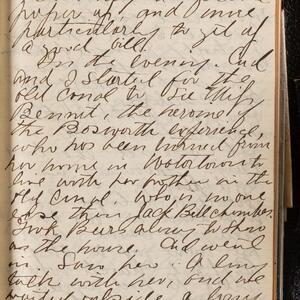 proper up, and I more
particularly to get up
a good bill.
In the evening, Cad
and I started for the
old canal to see Miss
Bennit, the heroine of
the Bosworth experience,
who has been turned from
her home in Watertown to
live with her brother in the
old canal. who is no one
else than Jack Billchamber.
Took Beers along to show
us the house. Cad went
in. Saw her. A long
talk with her, and we
waited outside